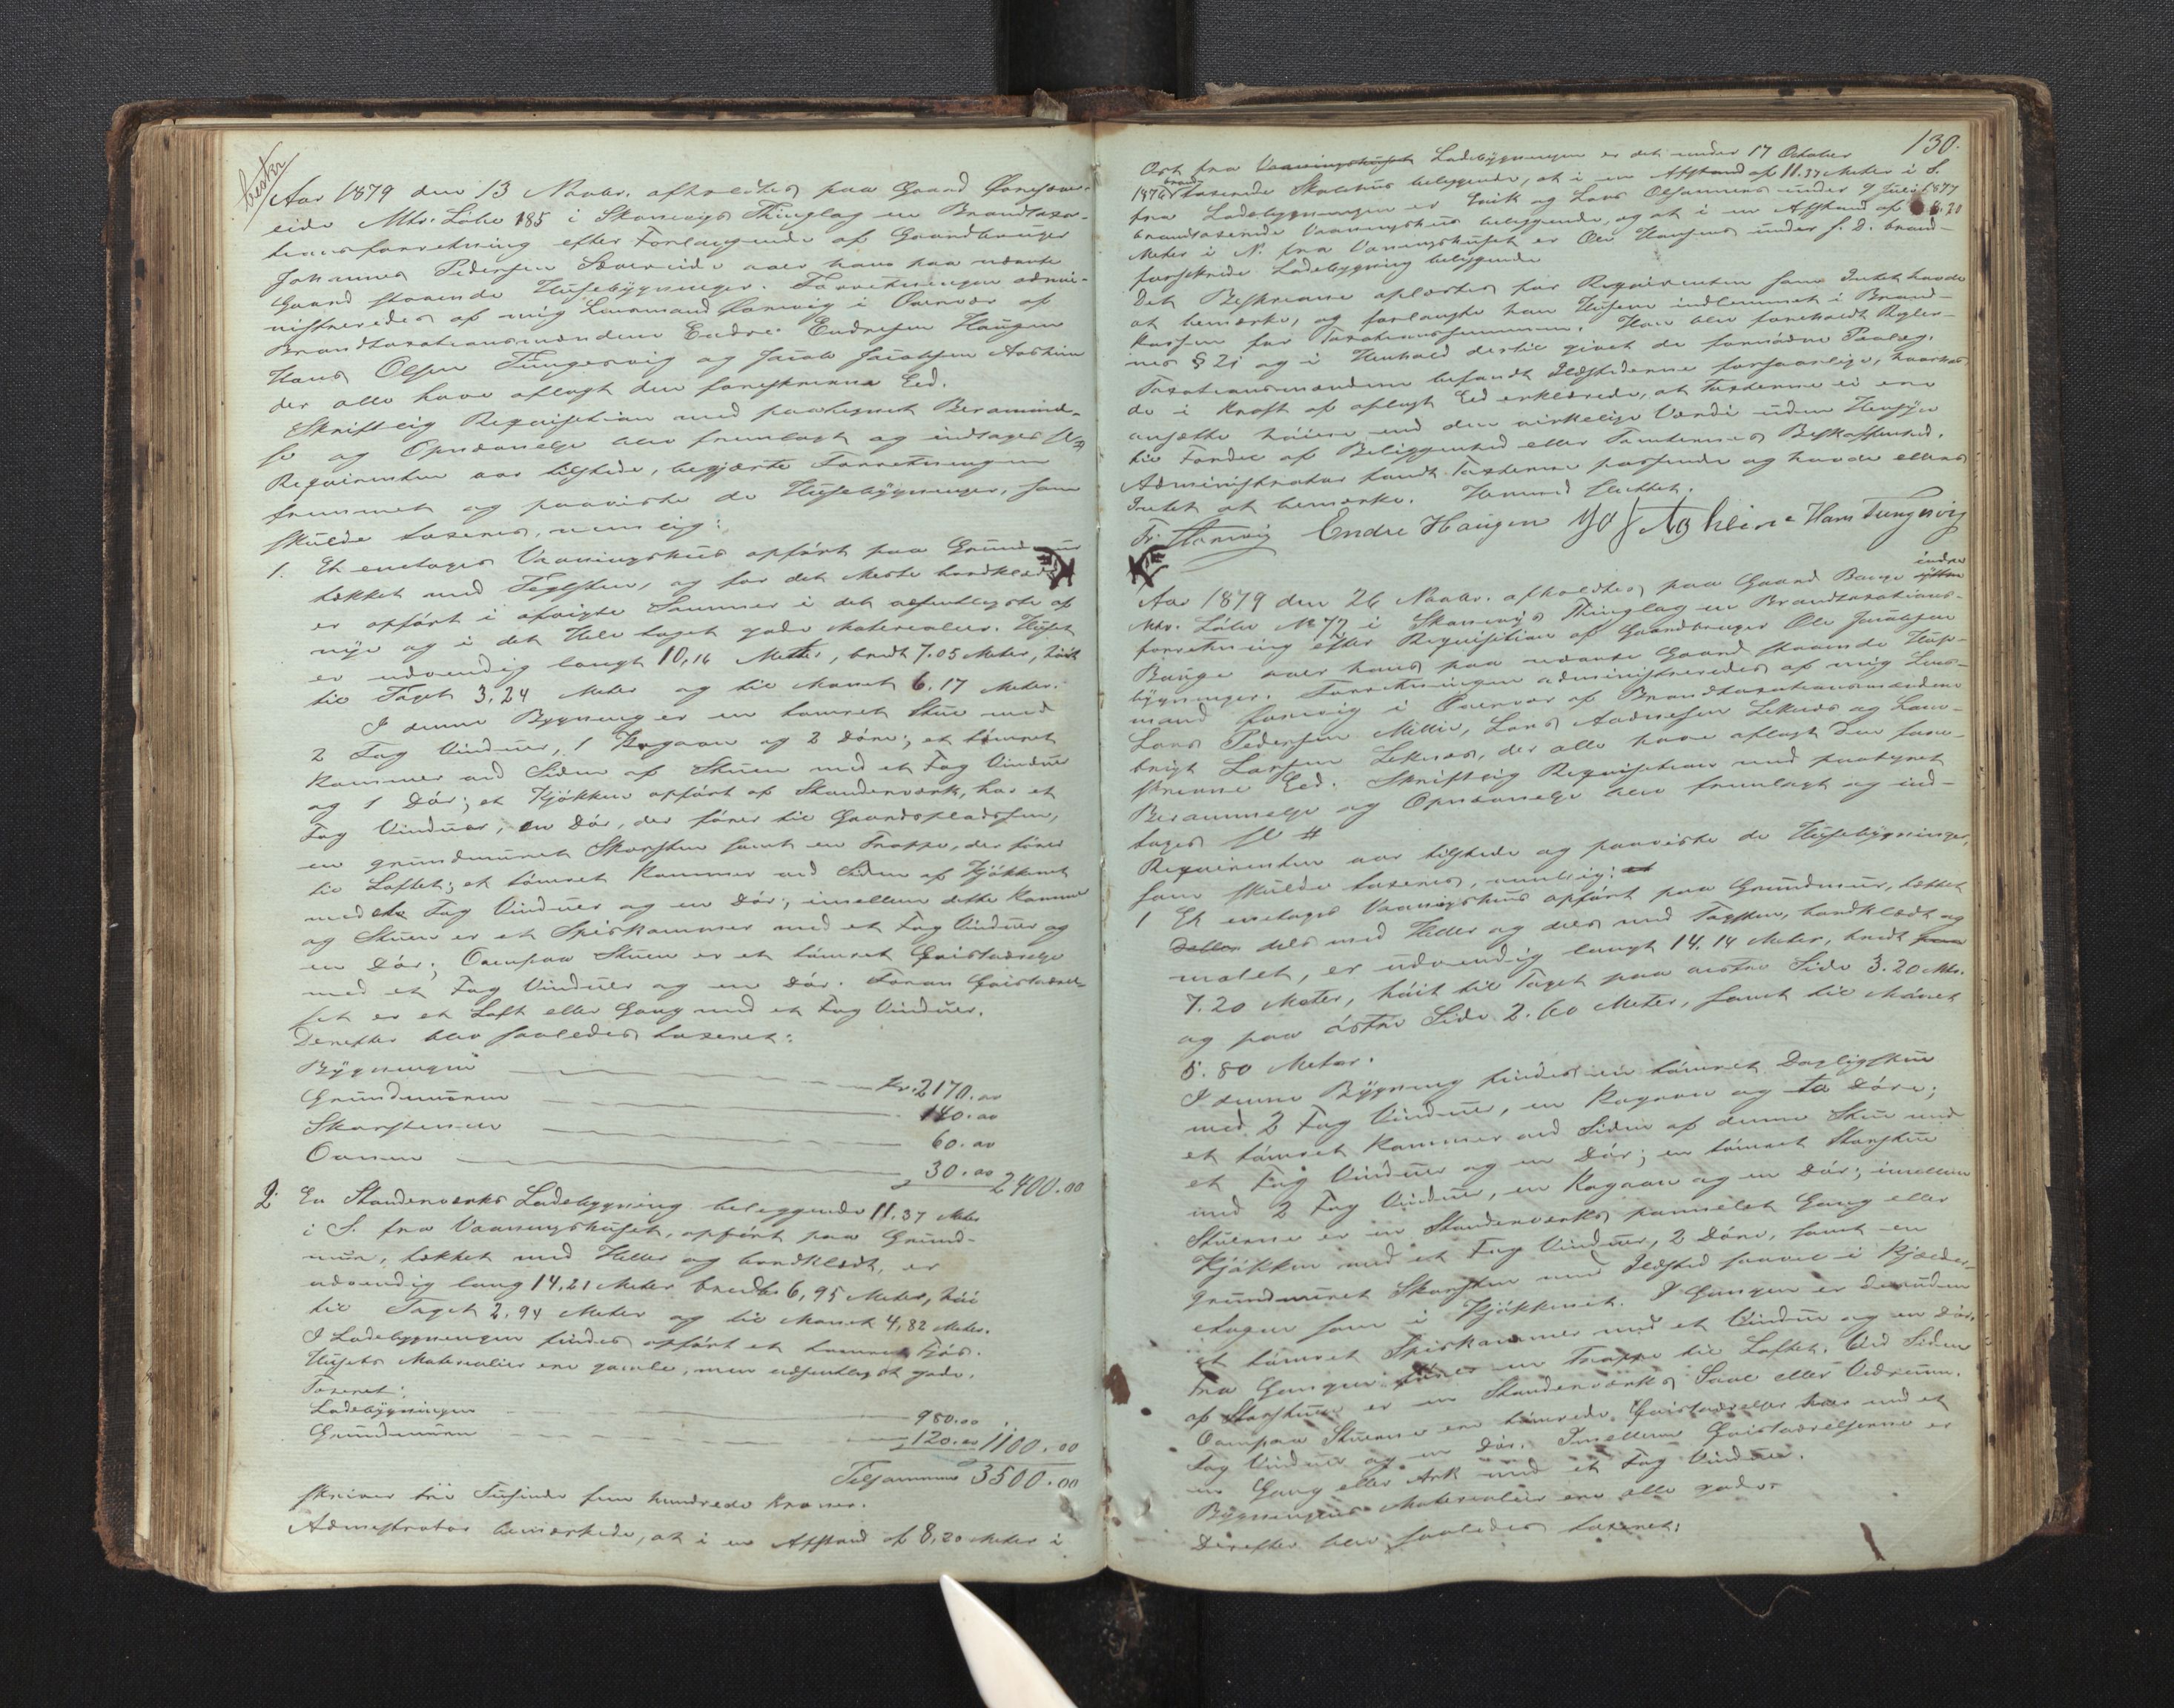 Aar 1879 den 13 Novbr. afholdtes paa Gaard Øvresæver-
eide Mtr. Løbe 185 i Skonevigs Thinglag en Brandtaxa-
tionsforretning efter Forlangende af Gaardbruger
Johannes Pedersen Sævereide over hans paa nævnte
Gaard staaende Husebygninger. Forretningen admi-
nistreredes af mig Lensmand i Overvær af
Brandtaxationsmændene Endre Endresen Haugen
Hans Olsen Tungesvig og Jacob Jacobsen
der alle have aflagt den foreskrevne Eed.
Skriftlig Requisition med paategnet Berammel-
se og Opnævnelse blev fremlagt og indtages
Requirenten var tilstede, begjærte Forretningen
fremmet og paaviste de Husebygninger, som
skulde taxeres, nemlig:
1. Et enetages Vaaningshus opført paa Grundmur
tækket med Teglsten, og for det Meste bordklædt
er opført i afvigte Sommer i det væsentligste af
nye og i det Hele taget gode Materialier. Huset
er udvendig langt 10,16 Meter, bredt 7.05 Meter, høit
til Taget 3,24 Meter og til Mønet 6.17 Meter.
I denne Bygning er en tømret Stue med
2 Fag Vinduer, 1 Kogeovn og 2 Døre; et tømret
Kammer ved Siden af Stuen med et Fag Vinduer
og 1 Dør; et Kjøkken opført af Standerværk, har et
Fag Vinduer, en Dør, der fører til Gaardspladsen,
en grundmuret Skorsten samt en Trappe, der fører
til Loftet; et tømret Kammer ved Siden af Kjøkkenet
med et Fag Vinduer og en Dør; imellem dette Kammer
og Stuen er et Spiskammer med et Fag Vinduer og
en Dør; Ovenpaa Stuen er et tømret Gjestværelse
med et Fag Vinduer og en Dør. Foran Gjestværel-
set er et Loft eller Gang med et Fag Vinduer.
Derefter blev saaledes taxeret:
Bygningen Kr. 2170.00
Grundmuren 140.00
Skorstenen 60.00
Ovnen 30.00 2400.00
2. En Standerværks Ladebygning beliggende 11.37 Meter
i S. fra Vaaningshuset, opført paa Grund-
mur, tækket med Heller og bordklædt, er
udvendig lang 14,21 Meter bredt 6,95 Meter, høi
til Taget 2,94 Meter og til Mønet 4,82 Meter.
I Ladebygningen findes opført et tømret Fjøs.
Husets Materialier ere gamle, men væsentligst gode.
Taxeret:
Ladebygningen 980.00
Grundmuren 120.00 1100.00
Tilsammen 3500.00
skriver tre Tusinde fem hundrede Kroner.
Administrator bemærkede, at i en Afstand af 8,20 Meter i
130.
Øst fra Vaaningshuset Ladebygningen er det under 17 October
1876 brandtaxerede Skolehus beliggende, at i en Afstand af 11.37 Meter i S.
fra Ladebygningen er Erik og Lars Olsønners under 9 Juli 1877
brandtaxerede Vaaningshus beliggende, og at i en Afstand af 8.20
Meter i N. fra Vaaningshuset er Ole Hansens under s. D. brand-
forsikrede Ladebygning beliggende
Det Beskrevne oplæstes for Requirenten som Intet havde
at bemærke, og forlangte han Husene indlemmet i Brand-
kassen for Taxationssummen. Han blev foreholdt Regler-
nes § 21 og i Henhold dertil givet de fornødne Paalæg.
Taxationsmændene befandt Ildstederne forsvarlige, hvorhos
de i Kraft af aflagt Eed erklærede, at Taxterne ei ere
ansatte høiere end den virkelige Værdi uden Hensyn
til Fordel af Beliggenhed eller Tomternes Beskaffenhed.
Administrator fandt Taxterne passende og havde ellers
Intet at bemærke. Hermed sluttet.
Endre Haugen Hans Tungesvig
Aar 1879 den 26 Novbr. afholdtes paa Gaard Bauge indre
Mtr. Løbe No 72 i Skonevigs Thinglag en Brandtaxations-
forretning efter Requisition af Gaardbruger Ole Jacobsen
Bauge over hans paa nævnte Gaard staaende Huse-
bygninger. Forretningen administreredes af mig Lens-
mand i Overvær af Brandtaxationsmændene
Lars Pedersen Lars Aadnesen Lekness og Lau-
brigt Larsen Lekness, der alle have aflagt den fore-
skrevne Eed. Skriftlig Requisition med paategnet
Berammelse og Opnævnelse blev fremlagt og ind-
tages #
Requirenten var tilstede og paaviste de Husebygninger,
som skulde taxeres, nemlig:
1 Et enetages Vaaningshus opført paa Grundmur, tækket
dels med Heller og dels med Tagsten, bordklædt og
malet, er udvendig langt 14.14 Meter, bredt
7.20 Meter, høit til Taget paa vestre Side 3.20 Mtr.
og paa østre Side 2.60 Meter, samt til Mønet
5.80 Meter.
I denne Bygning findes en tømret Dagligstue
med 2 Fag Vinduer, en Kogeovn og to Døre;
et tømret Kammer ved Siden af denne Stue med
et Fag Vinduer og en Dør; en tømret Storstue
med 2 Fag Vinduer, en Kogeovn og en Dør; imellem
Stuerne er en Standerværks pannelet Gang eller
Kjøkken med et Fag Vinduer, 2 Døre, samt en
grundmuret Skorsten med Ildsted saavel i Kjælder-
etagen som i Kjøkkenet. I Gangen er desuden
et tømret Spiskammer med et Vindue og en Dør.
Fra Gangen fører en Trappe til Loftet. Ved Siden
af Storstuen er en Standerværks Sval eller Vedrum.
Ovenpaa Stuerne ere tømrede Gjestværelser hver med et
Fag Vinduer og en Dør. Imellem Gjestværelserne er
en Gang eller Ark med et Fag Vinduer.
Bygningens Materialier ere alle gode.
Derefter blev saaledes taxeret: